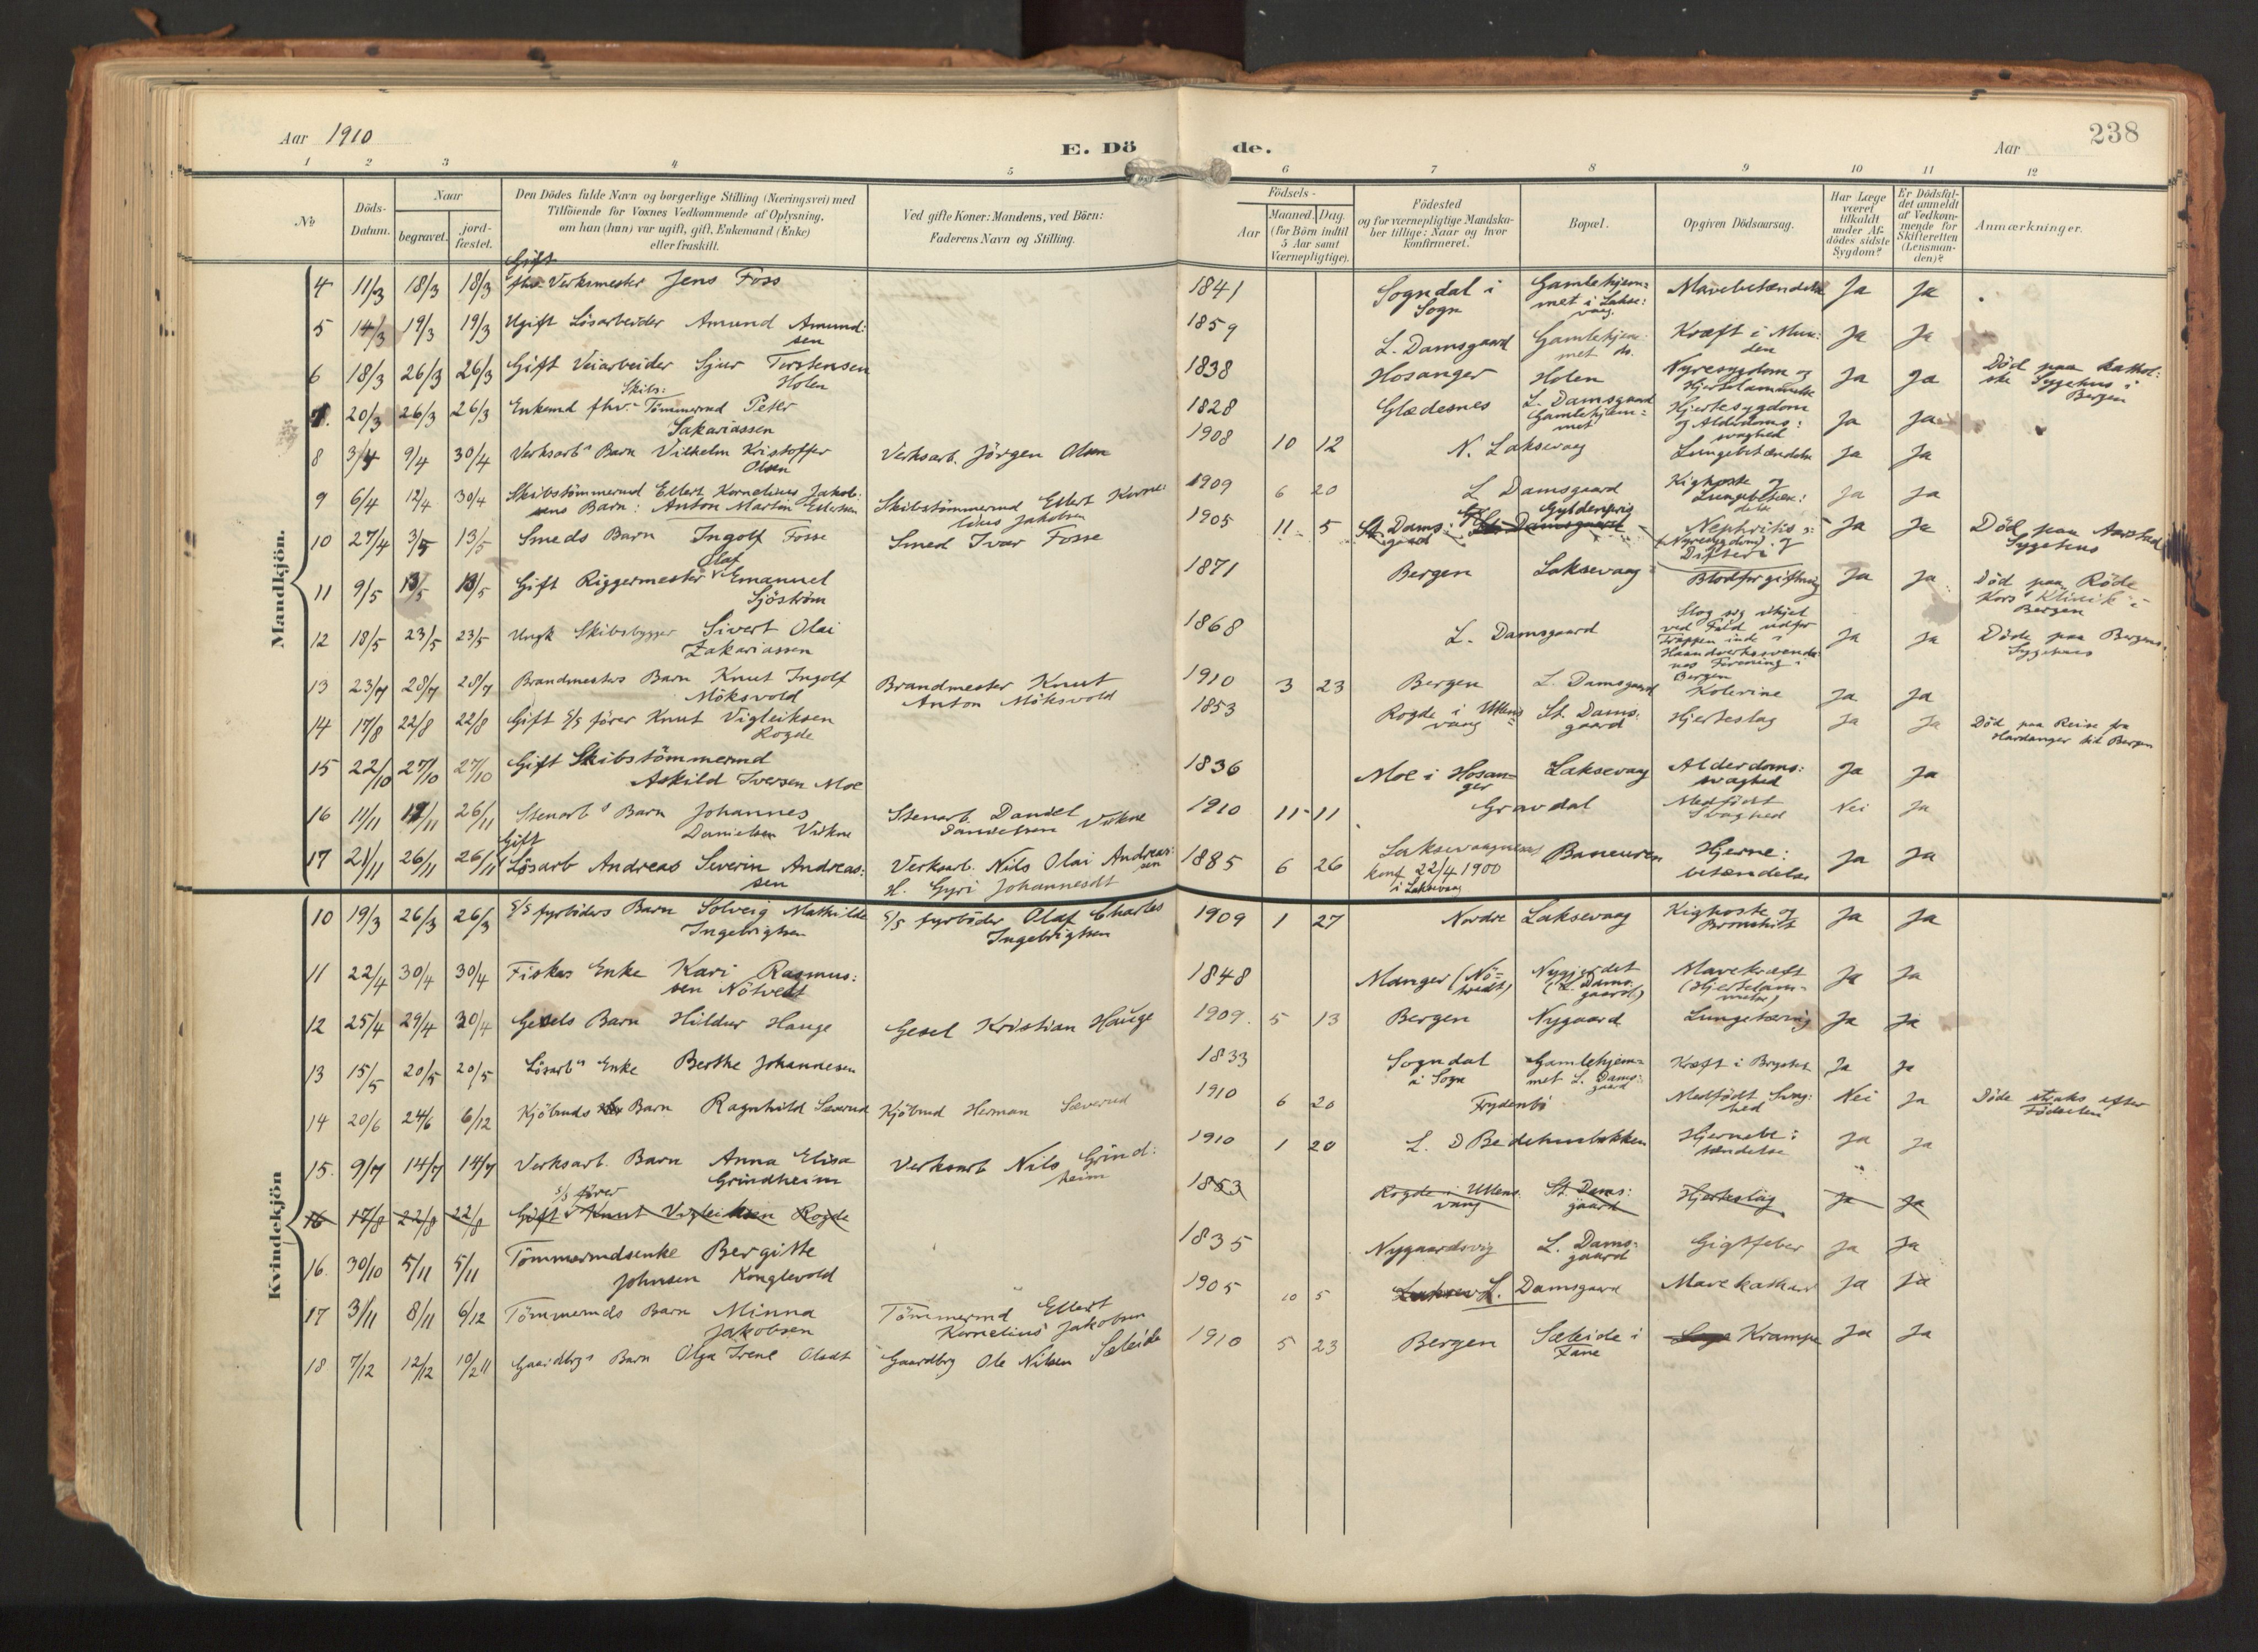 Aar 1910
E. Dö
de.
Aar
238
1 2 3 4 5 6 7 8 9 10 11 12
No
Döds-
Datum.
Naar
begravet.
jord-
fæstet.
Den Dödes fulde Navn og borgerlige Stilling (Næringsvei) med
Tilföiende for Voxnes Vedkommende af Oplysning,
om han (hun) var ugift, gift, Enkemand (Enke)
eller fraskilt.
Ved gifte Koner: Mandens, ved Börn:
Faderens Navn og Stilling.
Födsels-
Aar
Maaned. Dag.
(for Börn indtil
5 Aar samt
Værnepligtige).
Födested
og for værnepligtige Mandska-
ber tillige: Naar og hvor
konfirmeret.
Bopæl.
Opgiven Dödsaarsag.
Har Læge
været
tilkaldt
under Af-
dödes sidste
Sygdom?
Er Dödsfal-
det anmeldt
af Vedkom-
mende for
Skifteretten
(Lensman-
den)?
Anmærkninger.
Mandkjön.
Gift
4 11/3 18/3 18/3 fhv. Verksmester Jens Foss 1841 Sogndal i Gamlehjem= Mavebetændelse Ja Ja
Sogn met i Lakse:
vaag
5 14/3 19/3 19/3 Ugift Lösarbeider Amund Amund: 1859 L. Damsgaard Gamlehjem: Kræft i Mun: Ja Ja
sen met do. den
6 18/3 26/3 26/3 Gift Veiarbeider Sjur Torstensen 1838 Hosanger Holen Nyresygdom og Ja Ja Död paa kathol:
Holen Hjertelammelse ske Sygehus i
Bergen
Skibs:
7. 20/3 26/3 26/3 Enkemd fhv. Tömmermd Peter 1828 Glædesnes L. Damsgaard Hjertesygdom Ja Ja
Sakariassen Gamlehjem= og Alderdoms:
met svaghed
8 3/4 9/4 30/4 Verksarbs Barn Vilhelm Kristoffer Verksarb. Jörgen Olsen 1908 10 12 N. Laksevaag Lungebetændelse Ja Ja
Olsen
9 6/4 12/4 30/4 Skibstömmermd Ellert Kornelius Jakob: Skibstömmermd Ellert Korne: 1909 6 20 L. Damsgaard Kighoste og Ja Ja
sens Barn: Anton Martin Ellertsen lius Jakobsen Lungebetæn:
delse
10 27/4 3/5 13/5 Smeds Barn Ingolf Fosse Smed Ivar Fosse 1905 11 5 St. Dams: Gyldenpris Nephritis Ja Ja Död paa Aarstad
gaard Damsgaard (Nyresygdom) og Sygehus
Difteri
Olaf
11 9/5 13/5 13/5 Gift Riggermester Emanuel 1871 Bergen Laksevaag Blodforgiftning Ja Ja Död paa Röde
Sjöström Kors' Klinik i
Bergen
12 18/5 23/5 23/5 Ungk Skibsbygger Sivert Olai 1868 L. Damsgaard Slog sig ihjel Ja Ja Döde paa Bergens
Zakariassen ved Fald udfor Sygehus
Trappen inde i
Haandverkssvende:
nes Forening i
Bergen
13 23/7 28/7 28/7 Brandmesters Barn Knut Ingolf Brandmester Knut 1910 3 23 Bergen L. Damsgaard Kolerine Ja Ja
Möksvold Anton Möksvold
14 17/8 22/8 22/8 Gift S/S förer Knut Vigleiksen 1853 Rogde i Ullens= St. Dams: Hjerteslag Ja Ja Död paa Reise fra
Rogde vang gaard Hardanger til Bergen
15 22/10 27/10 27/10 Gift Skibstömmermd 1836 Moe i Hosan= Laksevaag Alderdoms: Ja Ja
Askild Iversen Moe ger svaghed
16 11/11 17/11 26/11 Stenarbs Barn Johannes Stenarb. Daniel 1910 11 11 Gravdal Medfödt Nei Ja
Danielsen Vikne Danielsen Vikne Svaghed
Gift
17 21/11 26/11 26/11 Lösarb Andreas Severin Andreas: Verksarb. Nils Olai Andreas: 1885 6 26 Laksevaagnæs Baneuren Hjerne: Ja Ja
sen H. Gyri Johannesdt sen konf. 22/4 1900 betændelse
i Laksevaag
Kvindekjön
10 19/3 26/3 26/3 S/S fyrböders Barn Solveig Mathilde S/S fyrböder Olaf Charles 1909 1 27 Nordre Laksevaag Kighoste og Ja Ja
Ingebrigtsen Ingebrigtsen Bronchit
11 22/4 30/4 30/4 Fiskers Enke Kari Rasmus: 1848 Manger (Nö= Nygjerdet Mavekræft Ja Ja
sen Nötvedt tvedt) (L. Dams: (Hjertelam=
gaard) melse)
12 25/4 29/4 30/4 Gesels Barn Hildur Hauge Gesel Kristian Hauge 1909. 5 13 Bergen Nygaard Lungetæring Ja Ja
13 15/5 20/5 20/5 Lösarbs Enke Berthe Johannesen 1833 Sogndal Gamlehjem= Kræft i Brystet Ja Ja
i Sogn met L. Dams:
gaard
14 20/6 24/6 6/12 Kjöbmds Barn Ragnhild Sæverud Kjöbmd Herman Sæverud 1910 6 20 Frydenbö Medfödt Svag: Nei Ja Döde straks efter
hed Födselen
15. 9/7 14/7 14/7 Verksarb. Barn Anna Elisa Verksarb Nils Grind: 1910 1 20 L. D Bedehusbakken Hjernebe: Ja Ja
Grindheim heim tændelse
S/S förer
16 17/8 22/8 22/8 Gift Knut Vigleiksen Rogde 1853 Rogde i Ullens: St. Dams: Hjerteslag Ja Ja
vang gaard
16. 30/10 5/11 5/11 Tömmermdsenke Bergitte 1835 Nygaardsvig L. Dams: Gigtfeber Ja Ja
Johnsen Konglevold gaard
17 3/11 8/11 6/12 Tömmermds Barn Minna Tömmermd Ellert 1905 10 5 L. Damsgaard Mavekatharr Ja Ja
Jakobsen Kornelius Jakobsen
18 7/12 12/12 10/2 11 Gaardbrgs Barn Olga Irene Olsdt Gaardbrg Ole Nilsen Sæleide 1910 5 23 Bergen Sæleide i Krampe Ja Ja
Fane